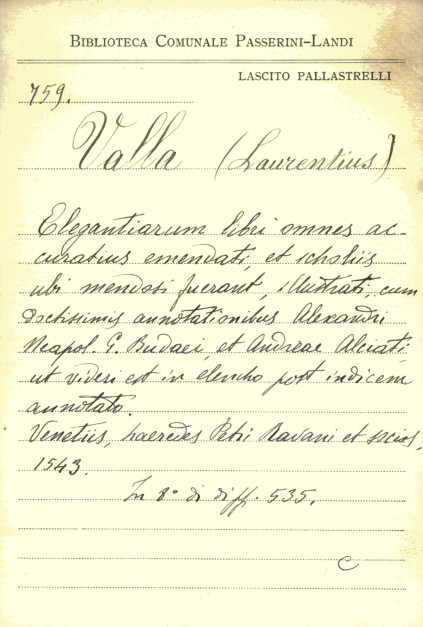 BIBLIOTECA COMUNALE PASSERINI-LANDI
LASCITO PALLASTRELLI
759.
Valla (Laurentius)
Elegantiarum libri omnes ac-
curatius emendati, et scholiis
ubi mendosi fuerant, illustrati, cum
doctissimis annotationibus Alexandri
Neapol. G. Budaei, et Andreae Alciati
ut videri est in elencho post indicem
annotato.
Venetiis, haeredes Petri Ravani et socios,
1543.
In 8° di diff. 535.
C